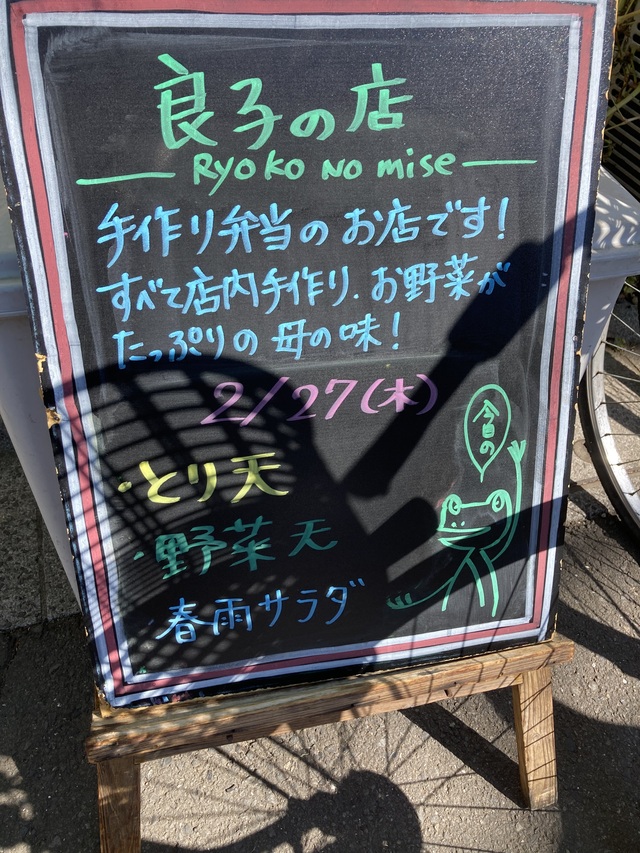 良子の店
Ryoko No mise
手作り弁当のお店です!
すべて店内手作り.お野菜が
たっぷりの母の味!
2/27(木)
今日の
・とり天
・野菜天
・春雨サラダ